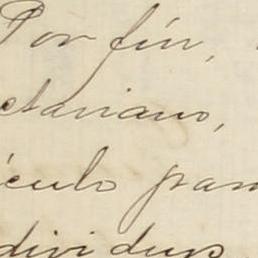 Por fín,
ctaviano,
ículo para
dividuos